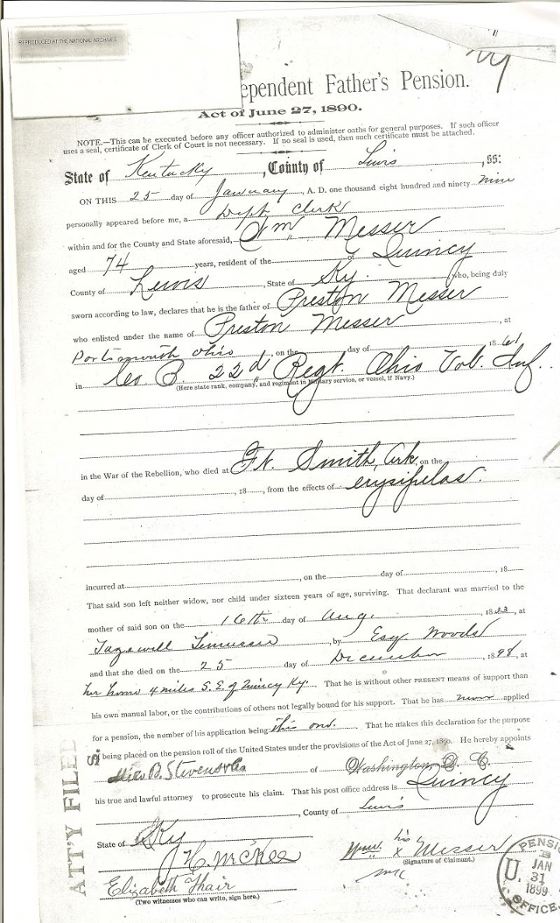 REPRODUCED AT THE NATIONAL ARCHIVES
ependent Father's Pension.
Act of June 27, 1890.
NOTE.—This can be executed before any officer authorized to administer oaths for general purposes. If such officer
uses a seal, certificate of Clerk of Court is not necessary. If no seal is used, then such certificate must be attached.
State of Kentucky, County of Lewis, ss:
ON THIS 25 day of January, A. D. one thousand eight hundred and ninety nine
personally appeared before me, a Depty Clerk
within and for the County and State aforesaid, Wm Messer
aged 74 years, resident of the Quincy
County of Lewis, State of Ky. who, being duly
sworn according to law, declares that he is the father of Preston Messer
who enlisted under the name of Preston Messer, at
Portsmouth Ohio, on the day of 1861
in Co. B. 22d Regt. Ohio Vol. Inf.
(Here state rank, company, and regiment in Military service, or vessel, if Navy.)
in the War of the Rebellion, who died at Ft. Smith, Ark, on the
day of , 18 , from the effects of erysipelas.
incurred at , on the day of , 18
That said son left neither widow, nor child under sixteen years of age, surviving. That declarant was married to the
mother of said son on the 16th day of Aug. 18, at
Tazewell by Esq Woods
and that she died on the 25 day of December, 1898, at
her home 4 miles S.E. of Quincy Ky. That he is without other PRESENT means of support than
his own manual labor, or the contributions of others not legally bound for his support. That he has applied
for a pension, the number of his application being this one. That he makes this declaration for the purpose
of being placed on the pension roll of the United States under the provisions of the Act of June 27, 1890. He hereby appoints
Milo B. Stevens & Co of Washington D. C.
his true and lawful attorney to prosecute his claim. That his post office address is Quincy
, County of Lewis
State of Ky
J C McKee
Wm his x Messer
mk
(Signature of Claimant.)
Elizabeth Thair
(Two witnesses who can write, sign here.)
ATT'Y FILED
PENSION
U. S.
JAN
31
1899
OFFICE